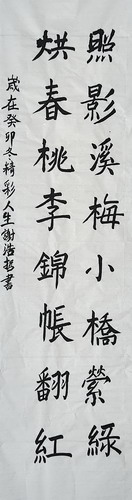 照影溪梅小橋縈綠
烘春桃李錦帳翻紅
歲在癸卯冬精彩人生謝浩哲書